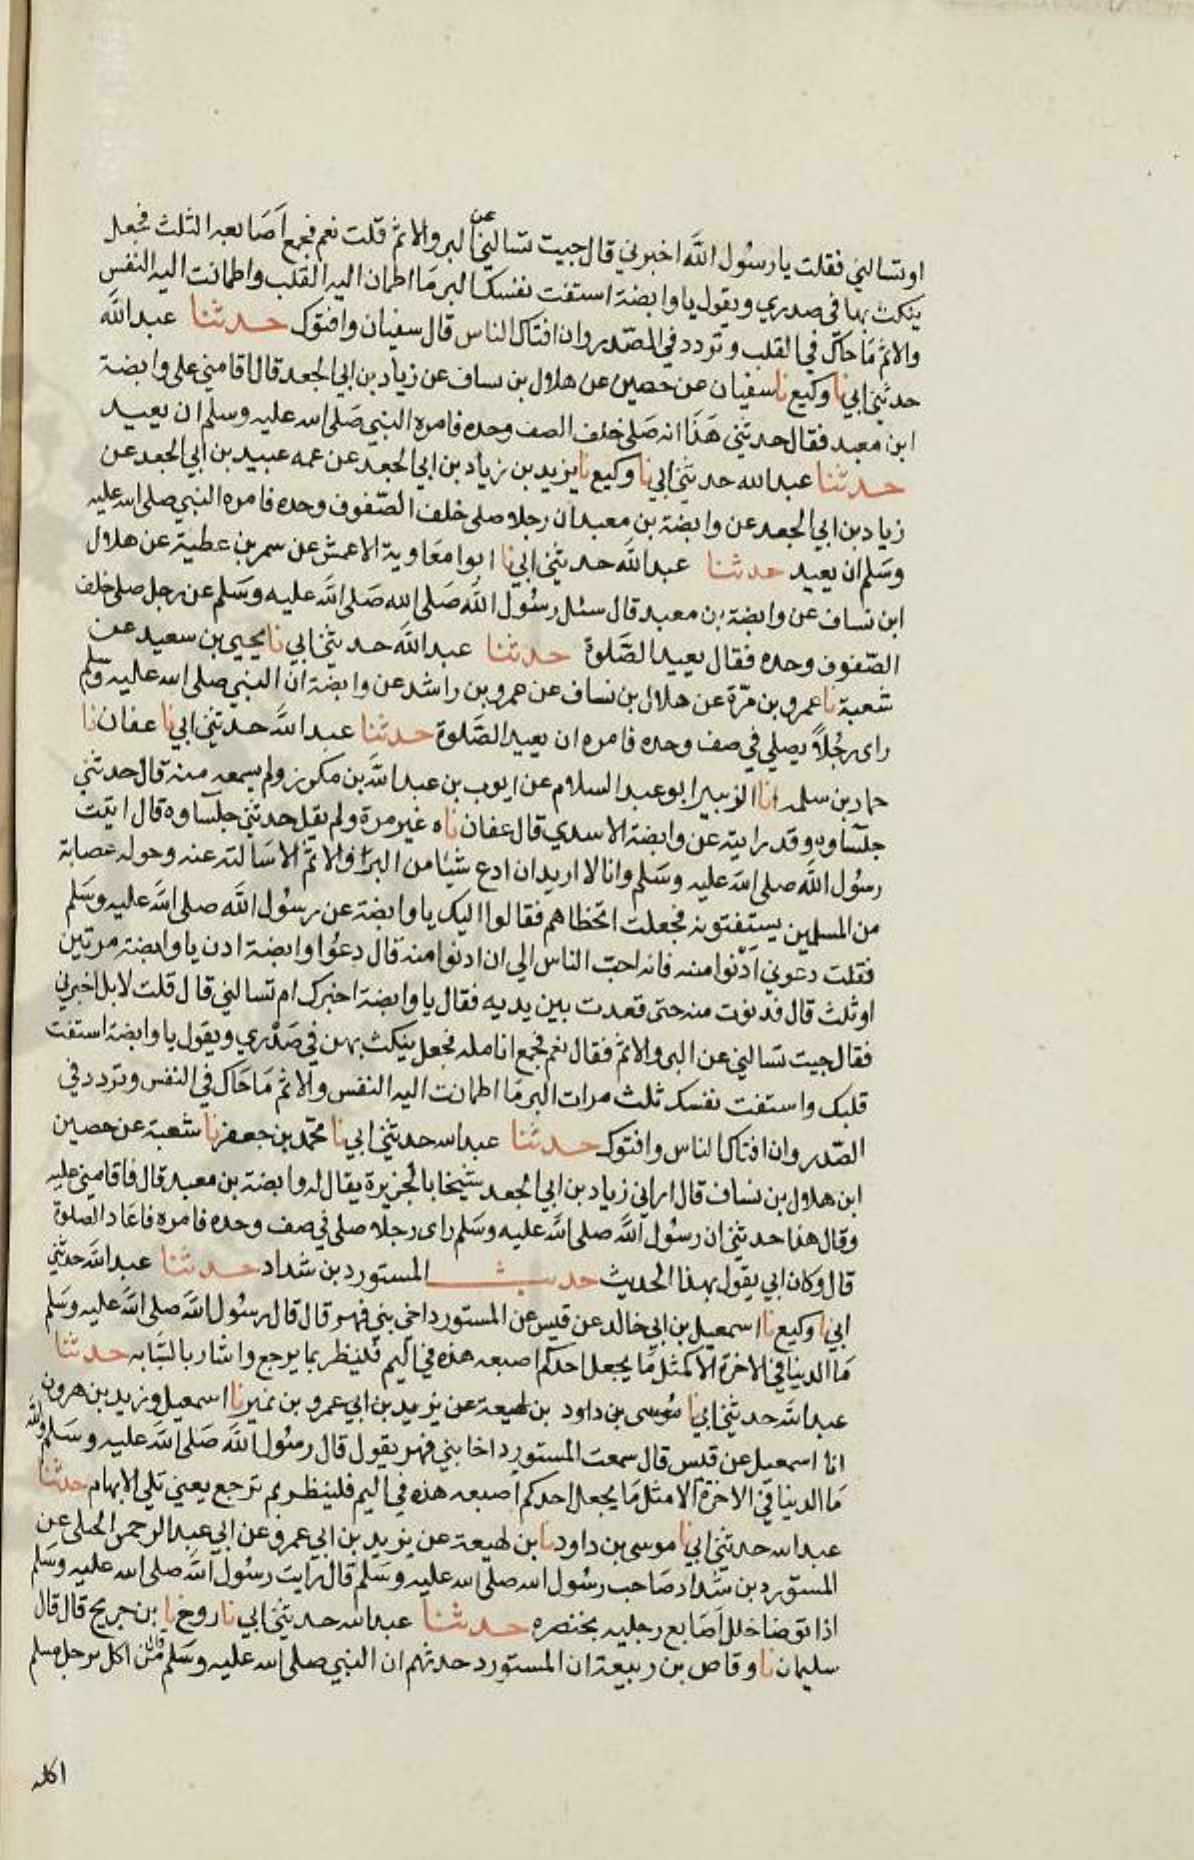 او تسالني فقلت يا رسُول الله اخبرني قال جيت تسالني عن البر والاثم قلت نعم فجمع اَصَابعه الثلث فجعل
ينكث بها في صدري ويقول يا وابضة استفت نفسك البر مَا اطمان اليه القلب واطمانت اليه النفس
والاثم مَا حاكّ في القلب وتردد في الصّدر وان افتاك الناس قال سفيان وافتوك حدثنا عبد الله
حدثني ابي نا وكيع نا سفيان عن حصين عن هلال بن يساف عن زياد بن ابي الجعد قال اقامني على وابضة
ابن معبد فقال حدثني هَذَا انه صَلى خلف الصف وحده فامره النبي صَلى الله عليه وسلم ان يعيد
حدثنا عبد الله حدثني ابي نا وكيع نا يزيد بن زياد بن ابي الجعد عن عمه عبيد بن ابي الجعد عن
زياد بن ابي الجعد عن وابضة بن معبد ان رجلا صلى خلف الصّفوف وحده فامره النبي صلى الله عليه
وسَلم ان يعيد حدثنا عبد الله حدثني ابي نا ابوا معَاوية الاعمش عن سمر بن عطية عن هلال
ابن نساف عن وابضة بن معبد قال سئل رسُول الله صَلى الله صَلى الله عليه وسَلم عن رجل صلى خلف
الصّفوف وحده فقال يعيد الصَّلوة حدثنا عبد الله حدثني ابي نا يحيى بن سعيد عن
شعبة نا عمرو بن مرّة عن هلال بن نساف عن عمرو بن راشد عن وابضة ان النبي صلى الله عليه وسلم
راى رجُلاً يصلي في صف وحده فامره ان يعيد الصَّلوة حدثنا عبد الله حدثني ابي نا عفان نا
حماد بن سلمه انا الزبير ابو عبد السلام عن ايوب بن عبد الله بن مكرز ولم يسمعه منه قال حدثني
جلسَاوه وقد رايته عن وابضة الاسدي قال عفان ناه غير مرة ولم يقل حدثني جلسَاوه قال اتيت
رسُول الله صلى الله عليه وسَلم وانا لا اريد ان ادع شيًا من البر والاثم الا سَالته عنه وحوله عصابة
من المسلمين يستفتونه فجعلت اتخطاهم فقالوا اليك يا وابضة عن رسُول الله صلى الله عليه وسَلم
فقلت دعوني اَدْنوا منه فانه احبّ الناس الي ان ادنوا منه قال دعُوا وابضة ادن يا وابضة مرتين
او ثلث قال فدنوت منه حتى قعدت بين يديه فقال يا وابضة اخبرك ام تسالني قال قلت لا بل اخبرني
فقال جيت تسَالني عن البر والاثم فقال نعم فجمع انامله فجعل ينكث بهن في صَدْري ويقول يا وابضة استفت
قلبك واستفت نفسك ثلث مرات البر مَا اطمانت اليه النفس والاثم مَا حَاك في النفس وتردد في
الصّدر وان افتاك الناس وافتوك حدثنا عبد الله حدثني ابي نا محمّد بن جعفر نا شعبة عن حصين
ابن هلال بن نساف قال اراني زياد بن ابي الجعد شيخا بالجزيرة يقال له وابضة بن معبد قال فاقامني عليه
وقال هذا حدثني ان رسُول الله صلى الله عليه وسَلم راى رجلا صلى في صف وحده فامره فاعَاد الصلوة
قال وكان ابي يقول بهذا الحديث حديث المستورد بن شداد حدثنا عبد الله حدثني
ابي نا وكيع نا اسمعيل بن ابي خالد عن قيس عن المستورد اخي بني فهر قال قال رسُول الله صلى الله عليه وسَلم
مَا الدنيا في الاخرة الا كمثل مَا يجعل احدكم اصبعه هذه في اليم فلينظر بما يرجع واشار بالسّبابه حدثنا
عبد الله حدثني ابي نا مُوسى بن داود بن لهيعة عن يزيد بن ابي عمرو بن نمير نا اسمعيل ويزيد بن هرون
انا اسمعيل عن قيس قال سمعت المستورد اخا بني فهر يقول قال رسُول الله صَلى الله عليه وسَلم والله
مَا الدنيا في الاخرة الا مثل مَا يجعل احدكم اصبعه هذه في اليم فلينظر بم ترجع يعني تلي الابهام حدثنا
عبد الله حدثني ابي نا موسى بن داود نا بن لهيعة عن يزيد بن ابي عمرو عن ابي عبد الرحمن الحبلى عن
المستورد بن شدّاد صَاحب رسُول الله صلى الله عليه وسَلم قال رايت رسُول الله صلى الله عليه وسَلم
اذا توضا خلل اصَابع رجليه بخنصره حدثنا عبد الله حدثني ابي نا روح نا بن جريج قال قال
سليمان نا وقاص بن ربيعة ان المستورد حدثهم ان النبي صلى الله عليه وسَلم قال من اكل برجل مسلم
اكله